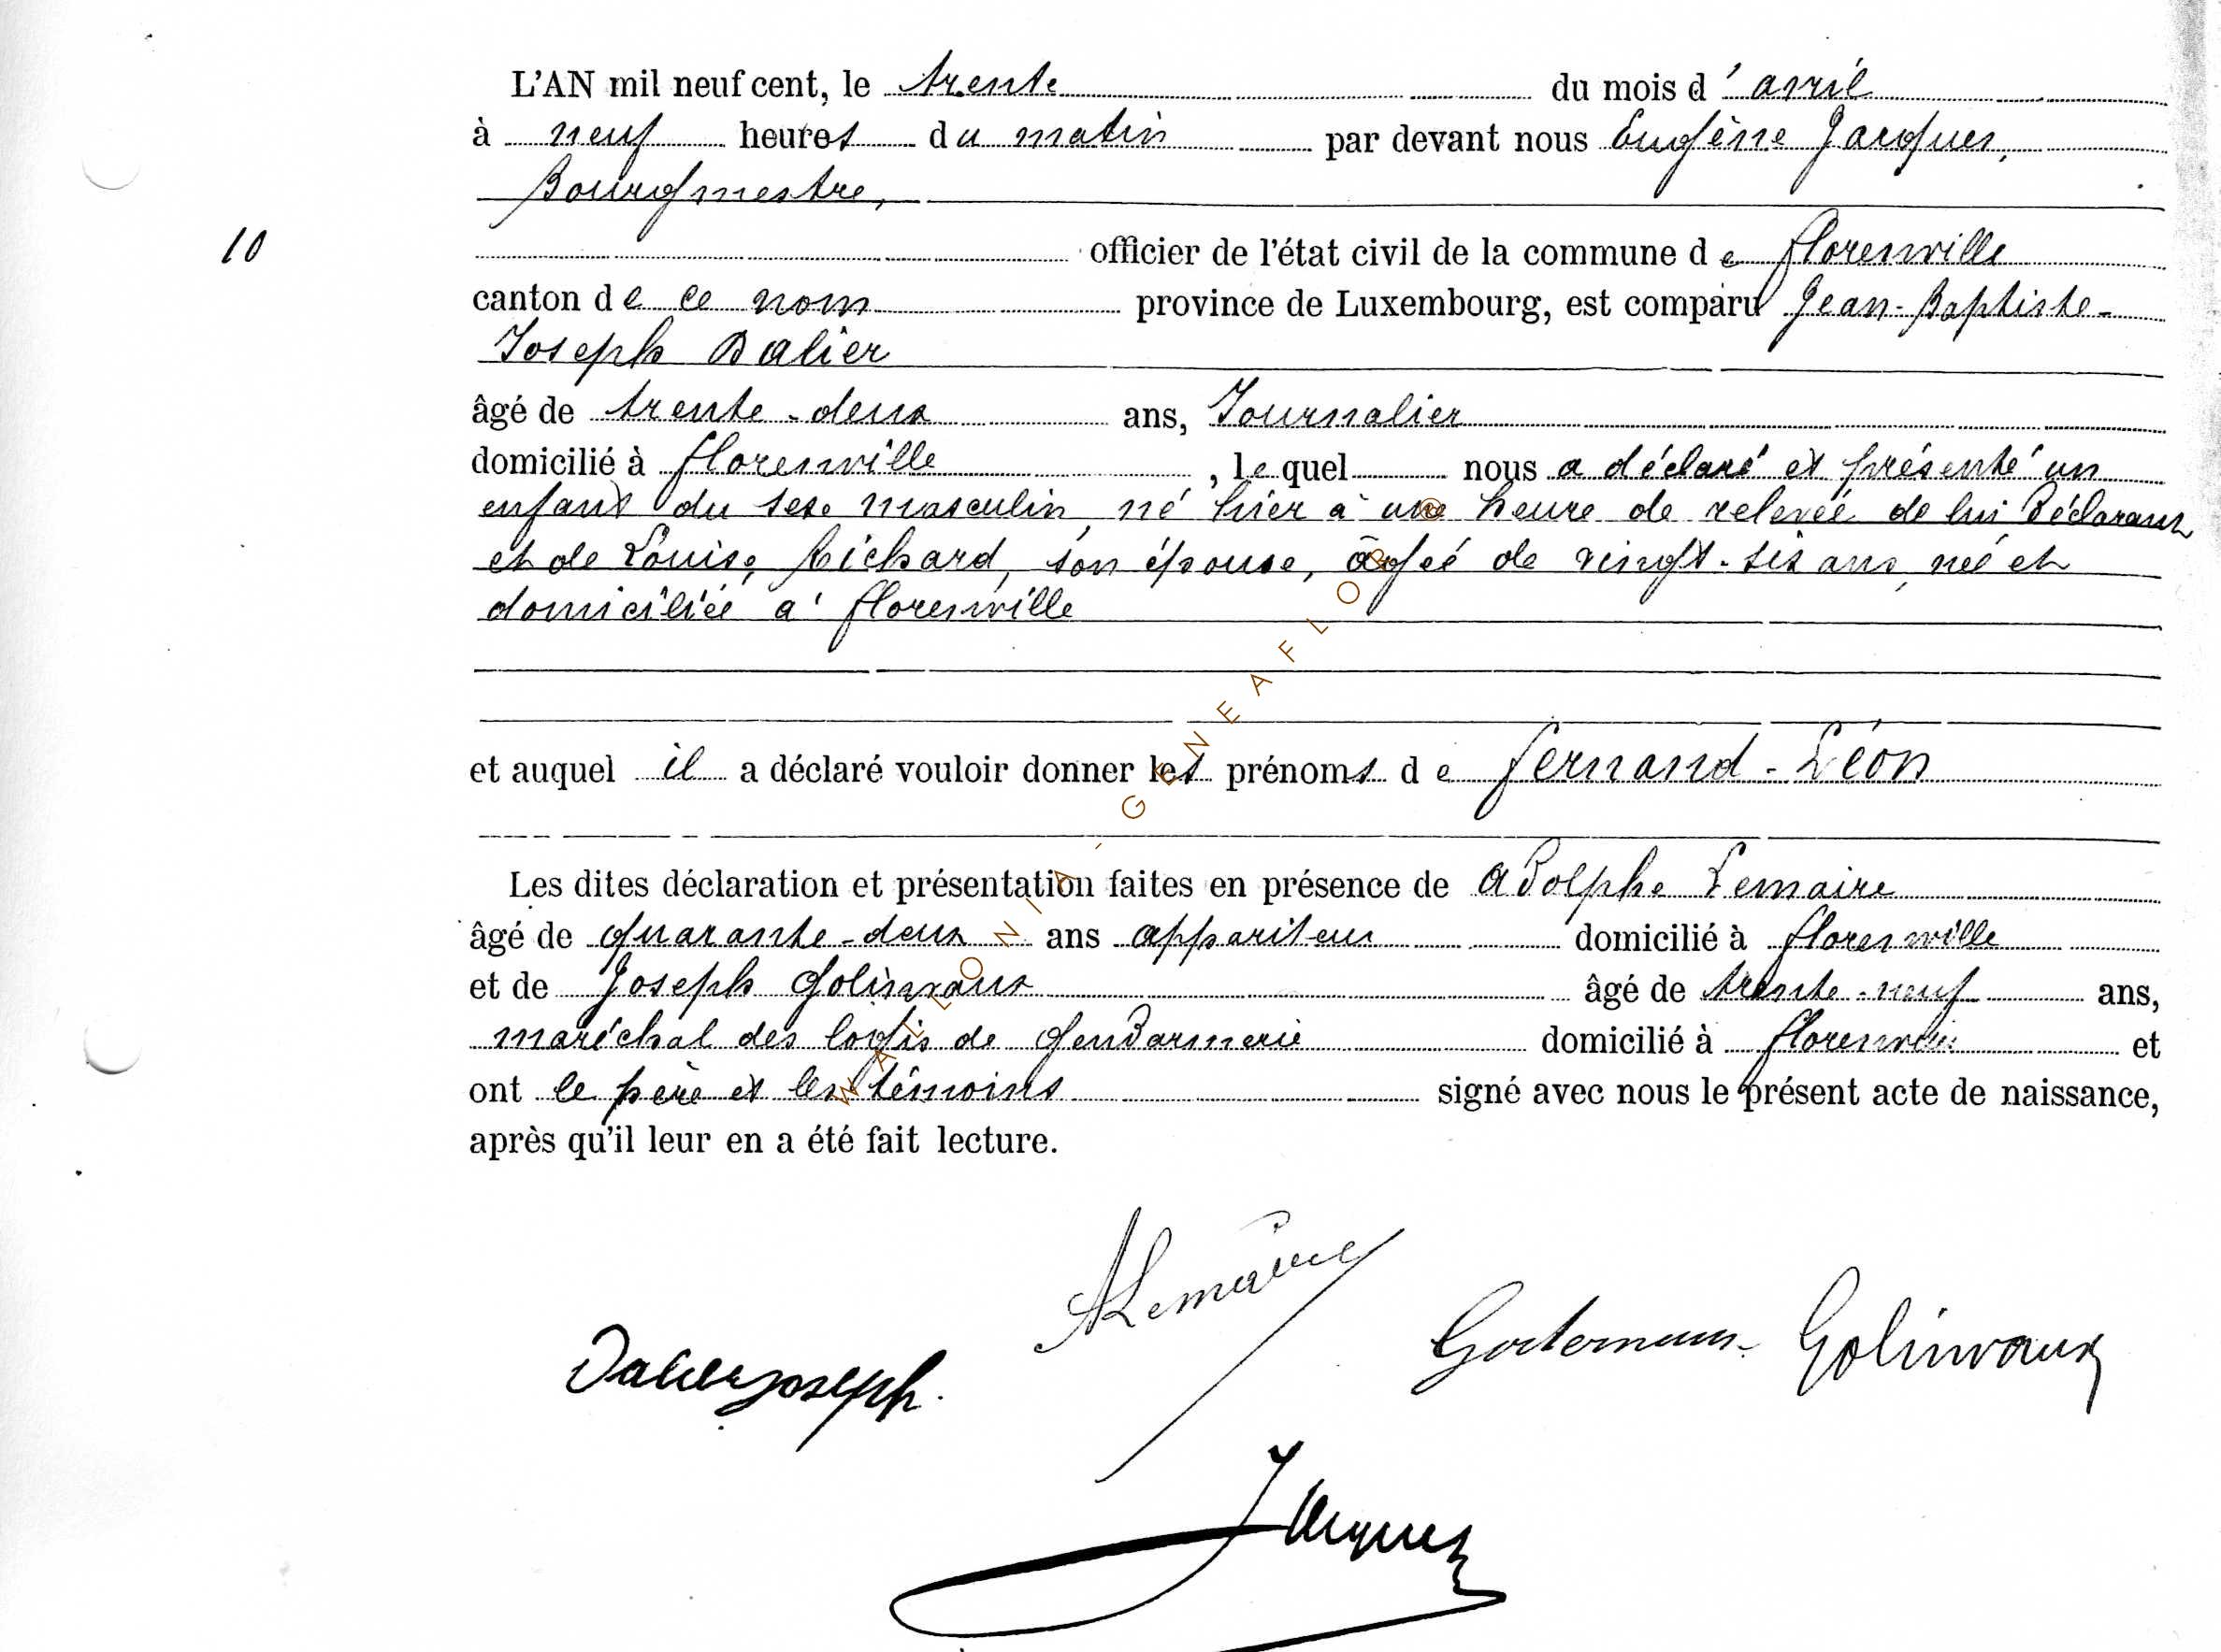 L'AN mil neuf cent, le trente du mois d'avril
à neuf heures du matin par devant nous Eugène Jacques,
Bourgmestre,
10
officier de l'état civil de la commune de florenville
canton de ce nom province de Luxembourg, est comparu Jean-Baptiste-
Joseph Dalier
âgé de trente-deux ans, Journalier
domicilié à florenville, lequel nous a déclaré et présenté un
enfant du sexe masculin, né hier à une heure de relevée de lui Déclarant
et de Louise Richard, son épouse, âgée de vingt-six ans, née et
domiciliée à florenville
et auquel il a déclaré vouloir donner les prénoms de fernand-Léon
Les dites déclaration et présentation faites en présence de Adolphe Lemaire
âgé de quarante-deux ans appariteur domicilié à florenville
et de Joseph Golinvaux âgé de trente-neuf ans,
maréchal des logis de gendarmerie domicilié à florenville et
ont le père et les témoins signé avec nous le présent acte de naissance,
après qu'il leur en a été fait lecture.
ALemaire
Dalier Joseph.
Golinvaux
Jacques
WALLONIA-GENEAFLOR@